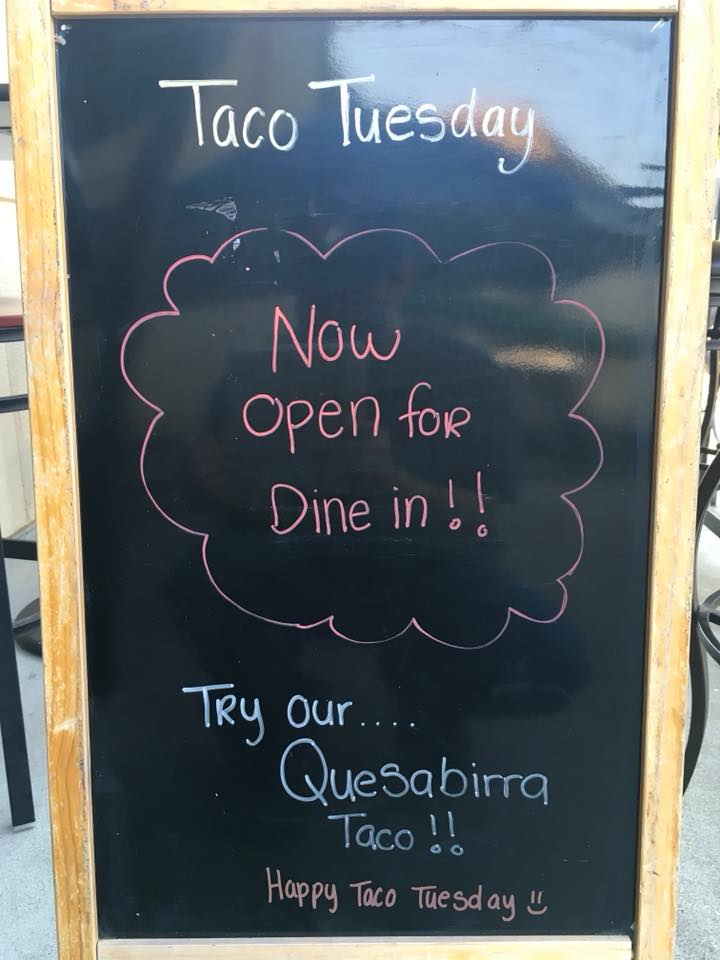 Taco Tuesday
Now
open for
Dine in !!
Try our....
Quesabirra
Taco !!
Happy Taco Tuesday